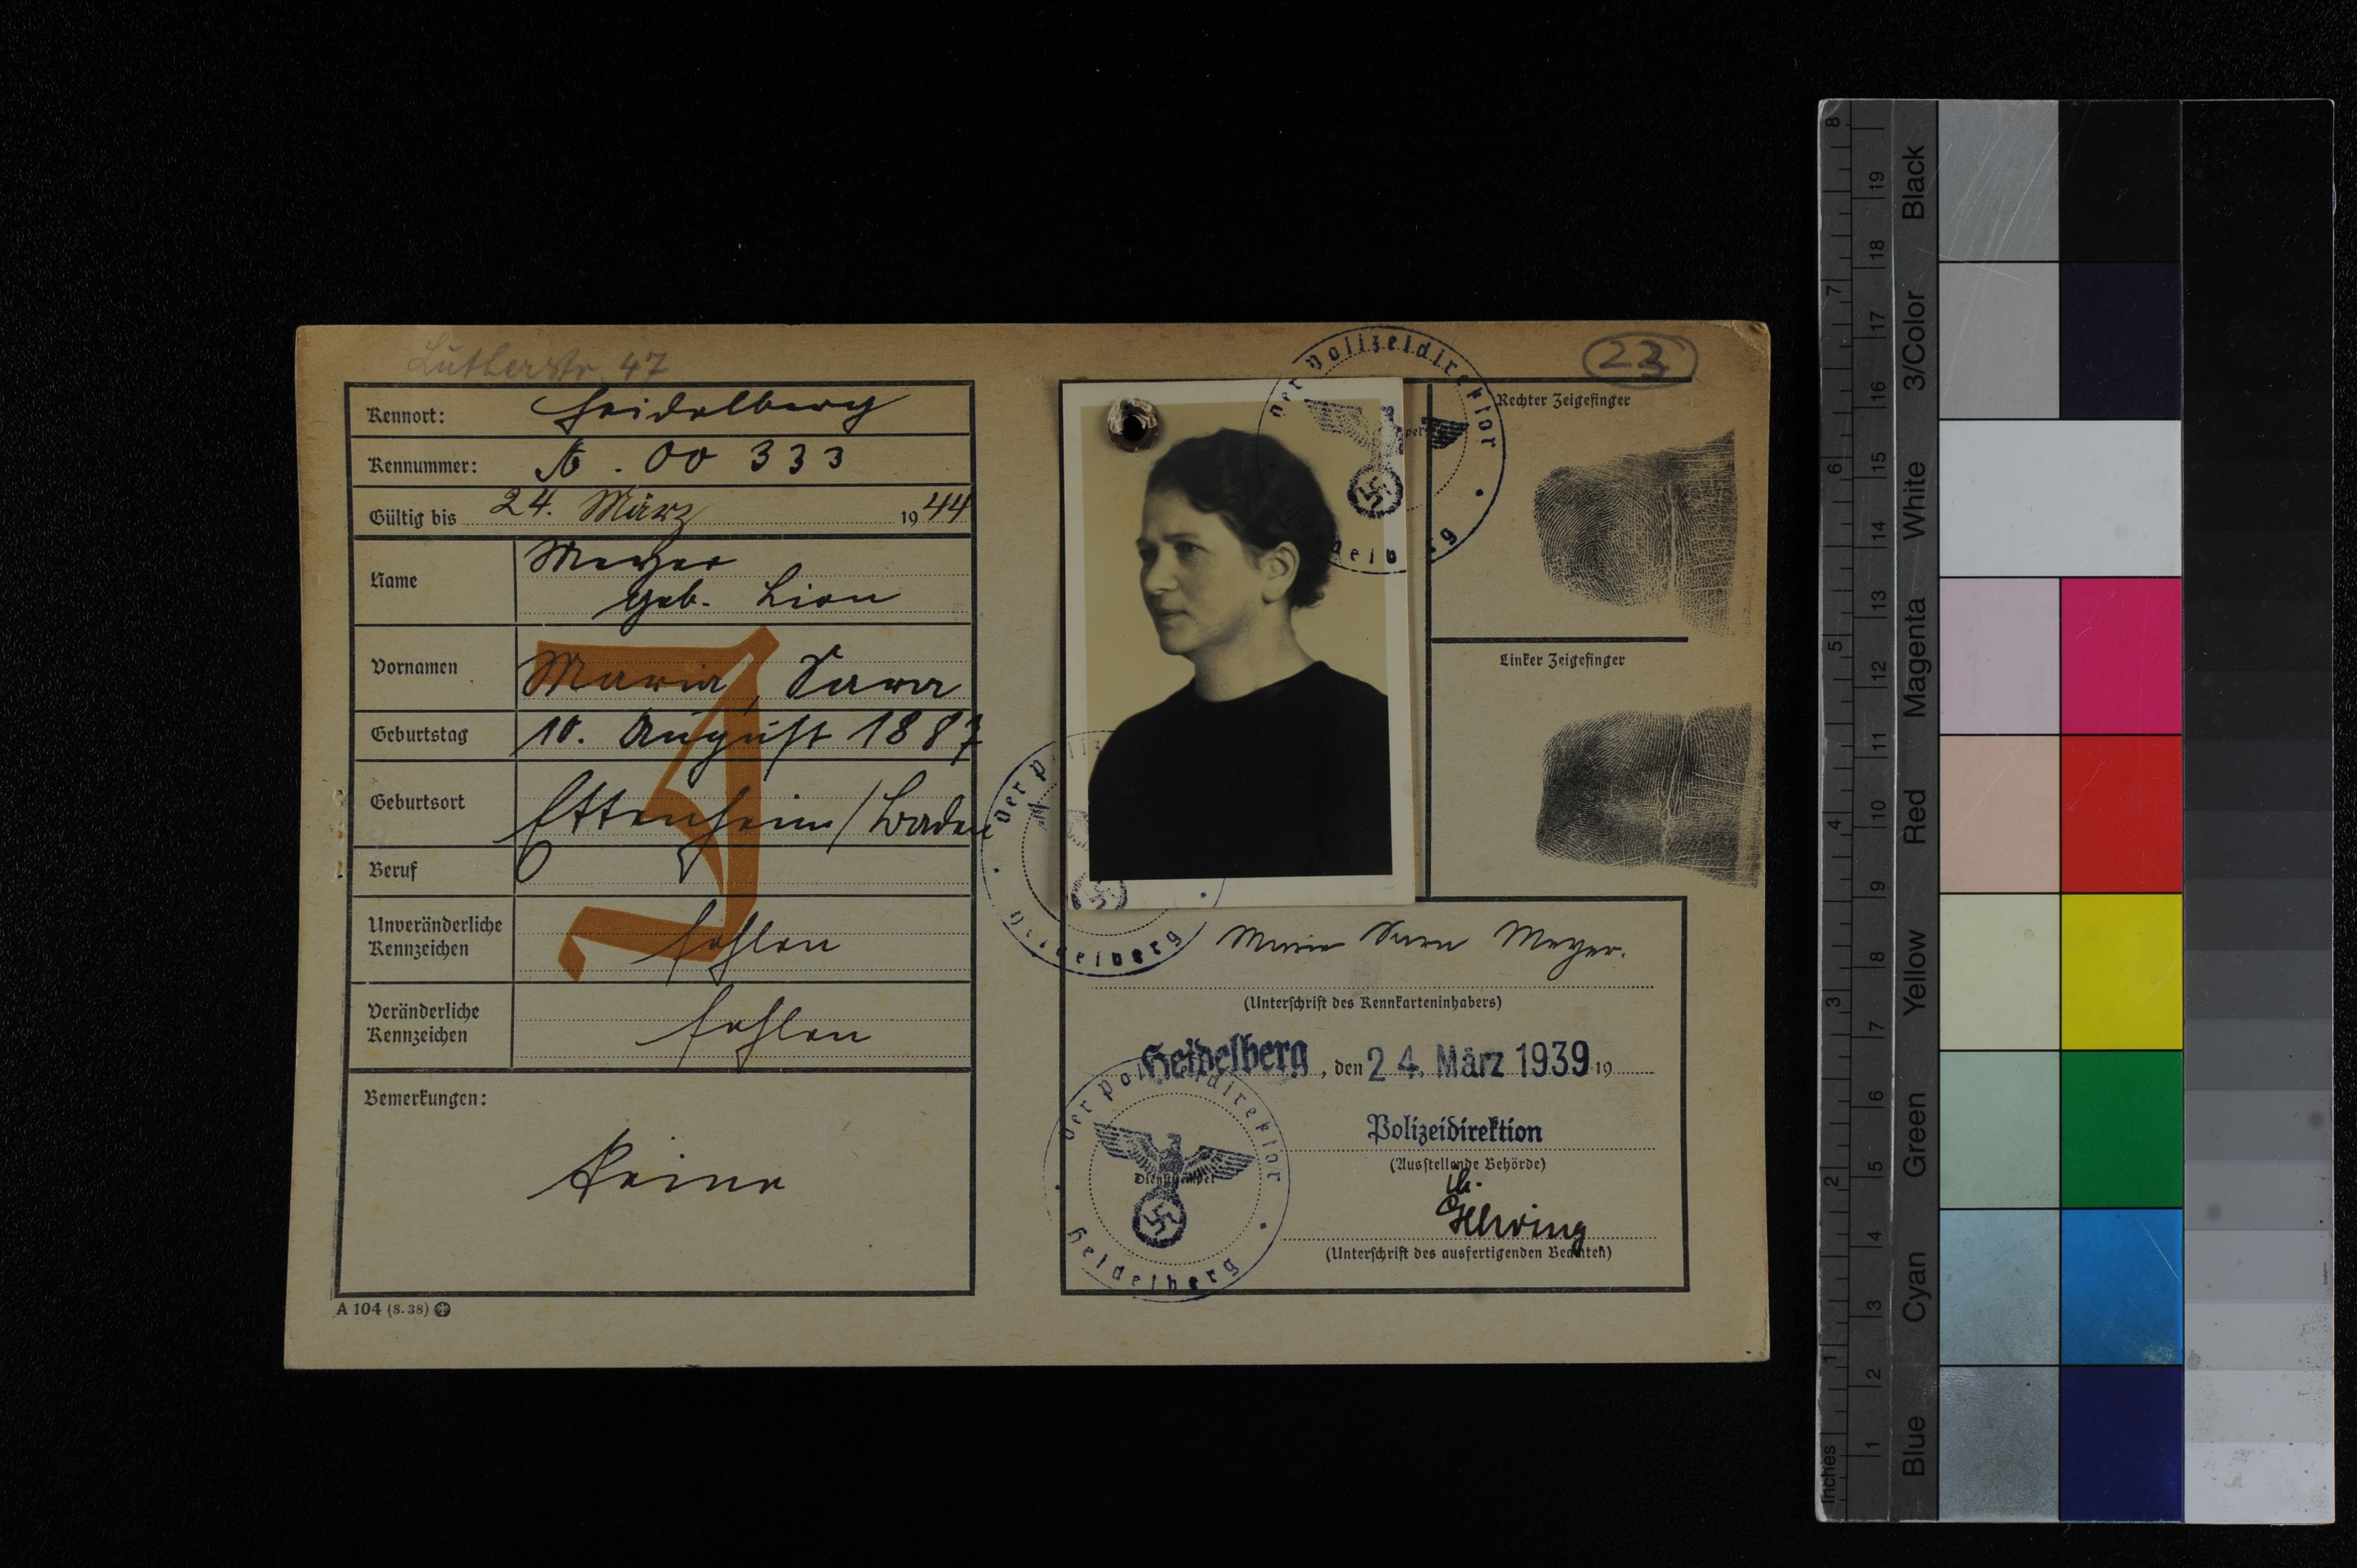 Lutherstr. 47
Kennort: Heidelberg
Kennummer: A. 00 333
Gültig bis 24. März 1944
Name Meyer
geb. Lion
Vornamen Maria, Sara
Geburtstag 10. August 1887
Geburtsort Ettenheim / Baden
Beruf
Unveränderliche
Kennzeichen fehlen
Veränderliche
Kennzeichen fehlen
Bemerkungen:
keine
A 104 (8. 38)
J
23
Der Polizeidirektor
Heidelberg
Rechter Zeigefinger
Linker Zeigefinger
Der Polizeidirektor
Heidelberg
Maria Sara Meyer.
(Unterschrift des Kennkarteninhabers)
Heidelberg, den 24. März 1939 19
Polizeidirektion
(Ausstellende Behörde)
Gehring
(Unterschrift des ausfertigenden Beamten)
Der Polizeidirektor
Dienststempel
Heidelberg
Inches 1 2 3 4 5 6 7 8
1 2 3 4 5 6 7 8 9 10 11 12 13 14 15 16 17 18 19
Blue Cyan Green Yellow Red Magenta White 3/Color Black